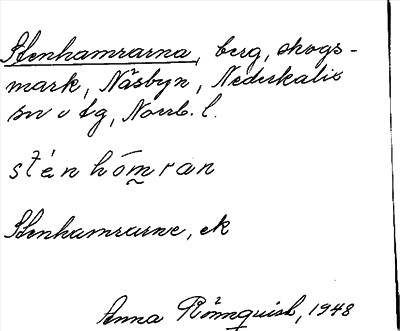 Stenhamrarna, berg, skogs-
mark, Näsbyn, Nederkalix
sn o tg, Norrb. l.
sténhómran
Stenhamrarne, ek
Anna Rönnquist, 1948